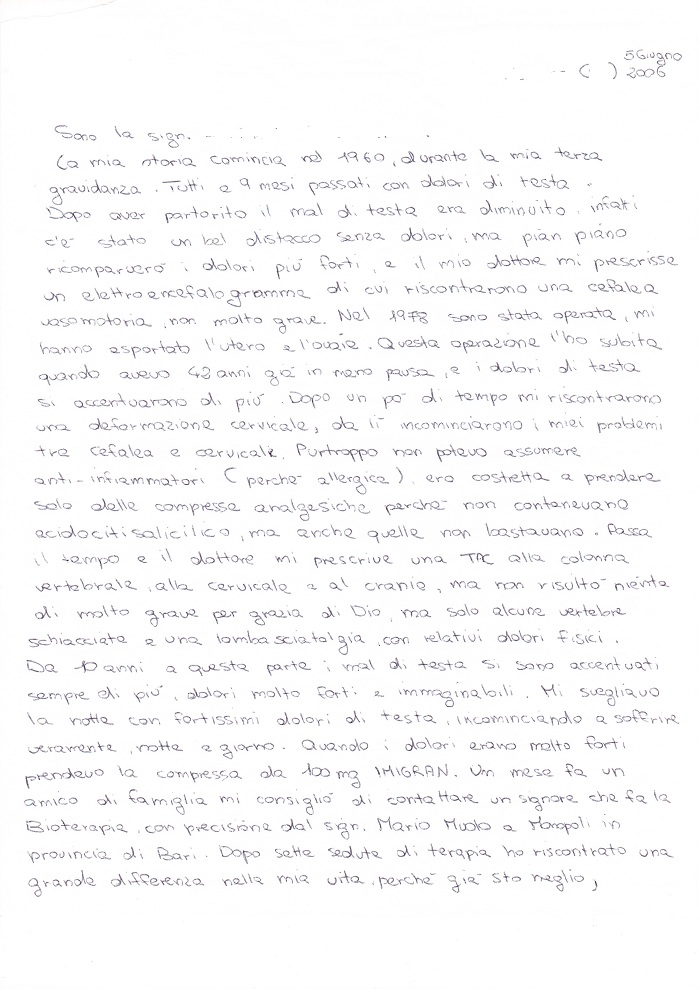 5 Giugno
( ) 2006
Sono la sign.
La mia storia comincia nel 1960, durante la mia terza
gravidanza. Tutti e 9 mesi passati con dolori di testa.
Dopo aver partorito il mal di testa era diminuito, infatti
c'è stato un bel distacco senza dolori, ma pian piano
ricomparvero i dolori più forti, e il mio dottore mi prescrisse
un elettroencefalogramma di cui riscontrarono una cefalea
vasomotoria, non molto grave. Nel 1978 sono stata operata, mi
hanno esportato l'utero e l'ovaie. Questa operazione l'ho subita
quando avevo 42 anni già in meno pausa, e i dolori di testa
si accentuarono di più. Dopo un pò di tempo mi riscontrarono
una deformazione cervicale, da lì incominciarono i miei problemi
tra cefalea e cervicale. Purtroppo non potevo assumere
anti-infiammatori (perchè allergica), ero costretta a prendere
solo delle compresse analgesiche perchè non contenevano
acidocitisalicilico, ma anche quelle non bastavano. Passa
il tempo e il dottore mi prescrive una TAC alla colonna
vertebrale, alla cervicale e al cranio, ma non risultò niente
di molto grave per grazia di Dio, ma solo alcune vertebre
schiacciate e una lombasciatalgia, con relativi dolori fisici.
Da 10 anni a questa parte i mal di testa si sono accentuati
sempre di più, dolori molto forti e immaginabili. Mi svegliavo
la notte con fortissimi dolori di testa, incominciando a soffrire
veramente, notte e giorno. Quando i dolori erano molto forti
prendevo la compressa da 100 mg IMIGRAN. Un mese fa un
amico di famiglia mi consigliò di contattare un signore che fa la
Bioterapia, con precisione dal sign. Mario Muolo a Monopoli in
provincia di Bari. Dopo sette sedute di terapia ho riscontrato una
grande differenza nella mia vita, perchè già sto meglio,